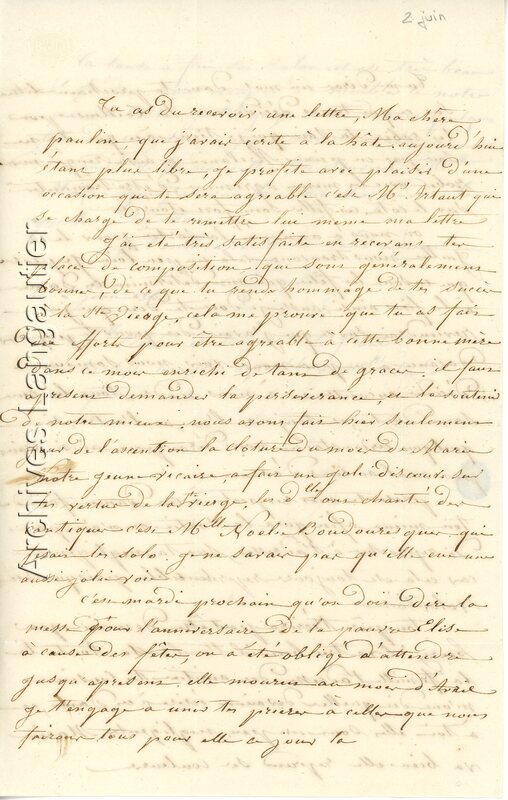 2 juin
Tu as du recevoir une lettre, Ma chère
pauline, que j'avais écrite à la hâte, aujourd'hui
étant plus libre, je profite avec plaisir d'une
occasion qui te sera agréable c'est Mr Artaut qui
se charge de te remettre lui meme ma lettre
J'ai été très satisfaite en recevant tes
places de composition qui sont généralement
bonnes, de ce que tu rends hommage de tes succès
à la Ste Vierge, cela me prouve que tu as fait
des efforts pour être agréable à cette bonne mère
dans ce mois enrichi de tant de graces. il faut
apresent demander la perséverance, et la soutenir
de notre mieux, nous avons fait hier seulement
jour de l'ascention la cloture du mois de Marie
notre jeune vicaire, a fait un joli discours sur
les vertus de la Ste Vierge, les dlles ont chanté des
cantiques c'est Mlle Noëlie Boudouresque qui
fesait les solo. je ne savais pas qu'elle eut une
aussi jolie voix
c'est mardi prochain qu'on doit dire la
messe pour l'anniversaire de la pauvre Elise
à cause des fêtes, on a été obligé d'attendre
jusqu'apresent. elle mourut au mois d'Avril
je t'engage à unir tes prières à celles que nous
fairons tous pour elle ce jour la
Archives Langautier